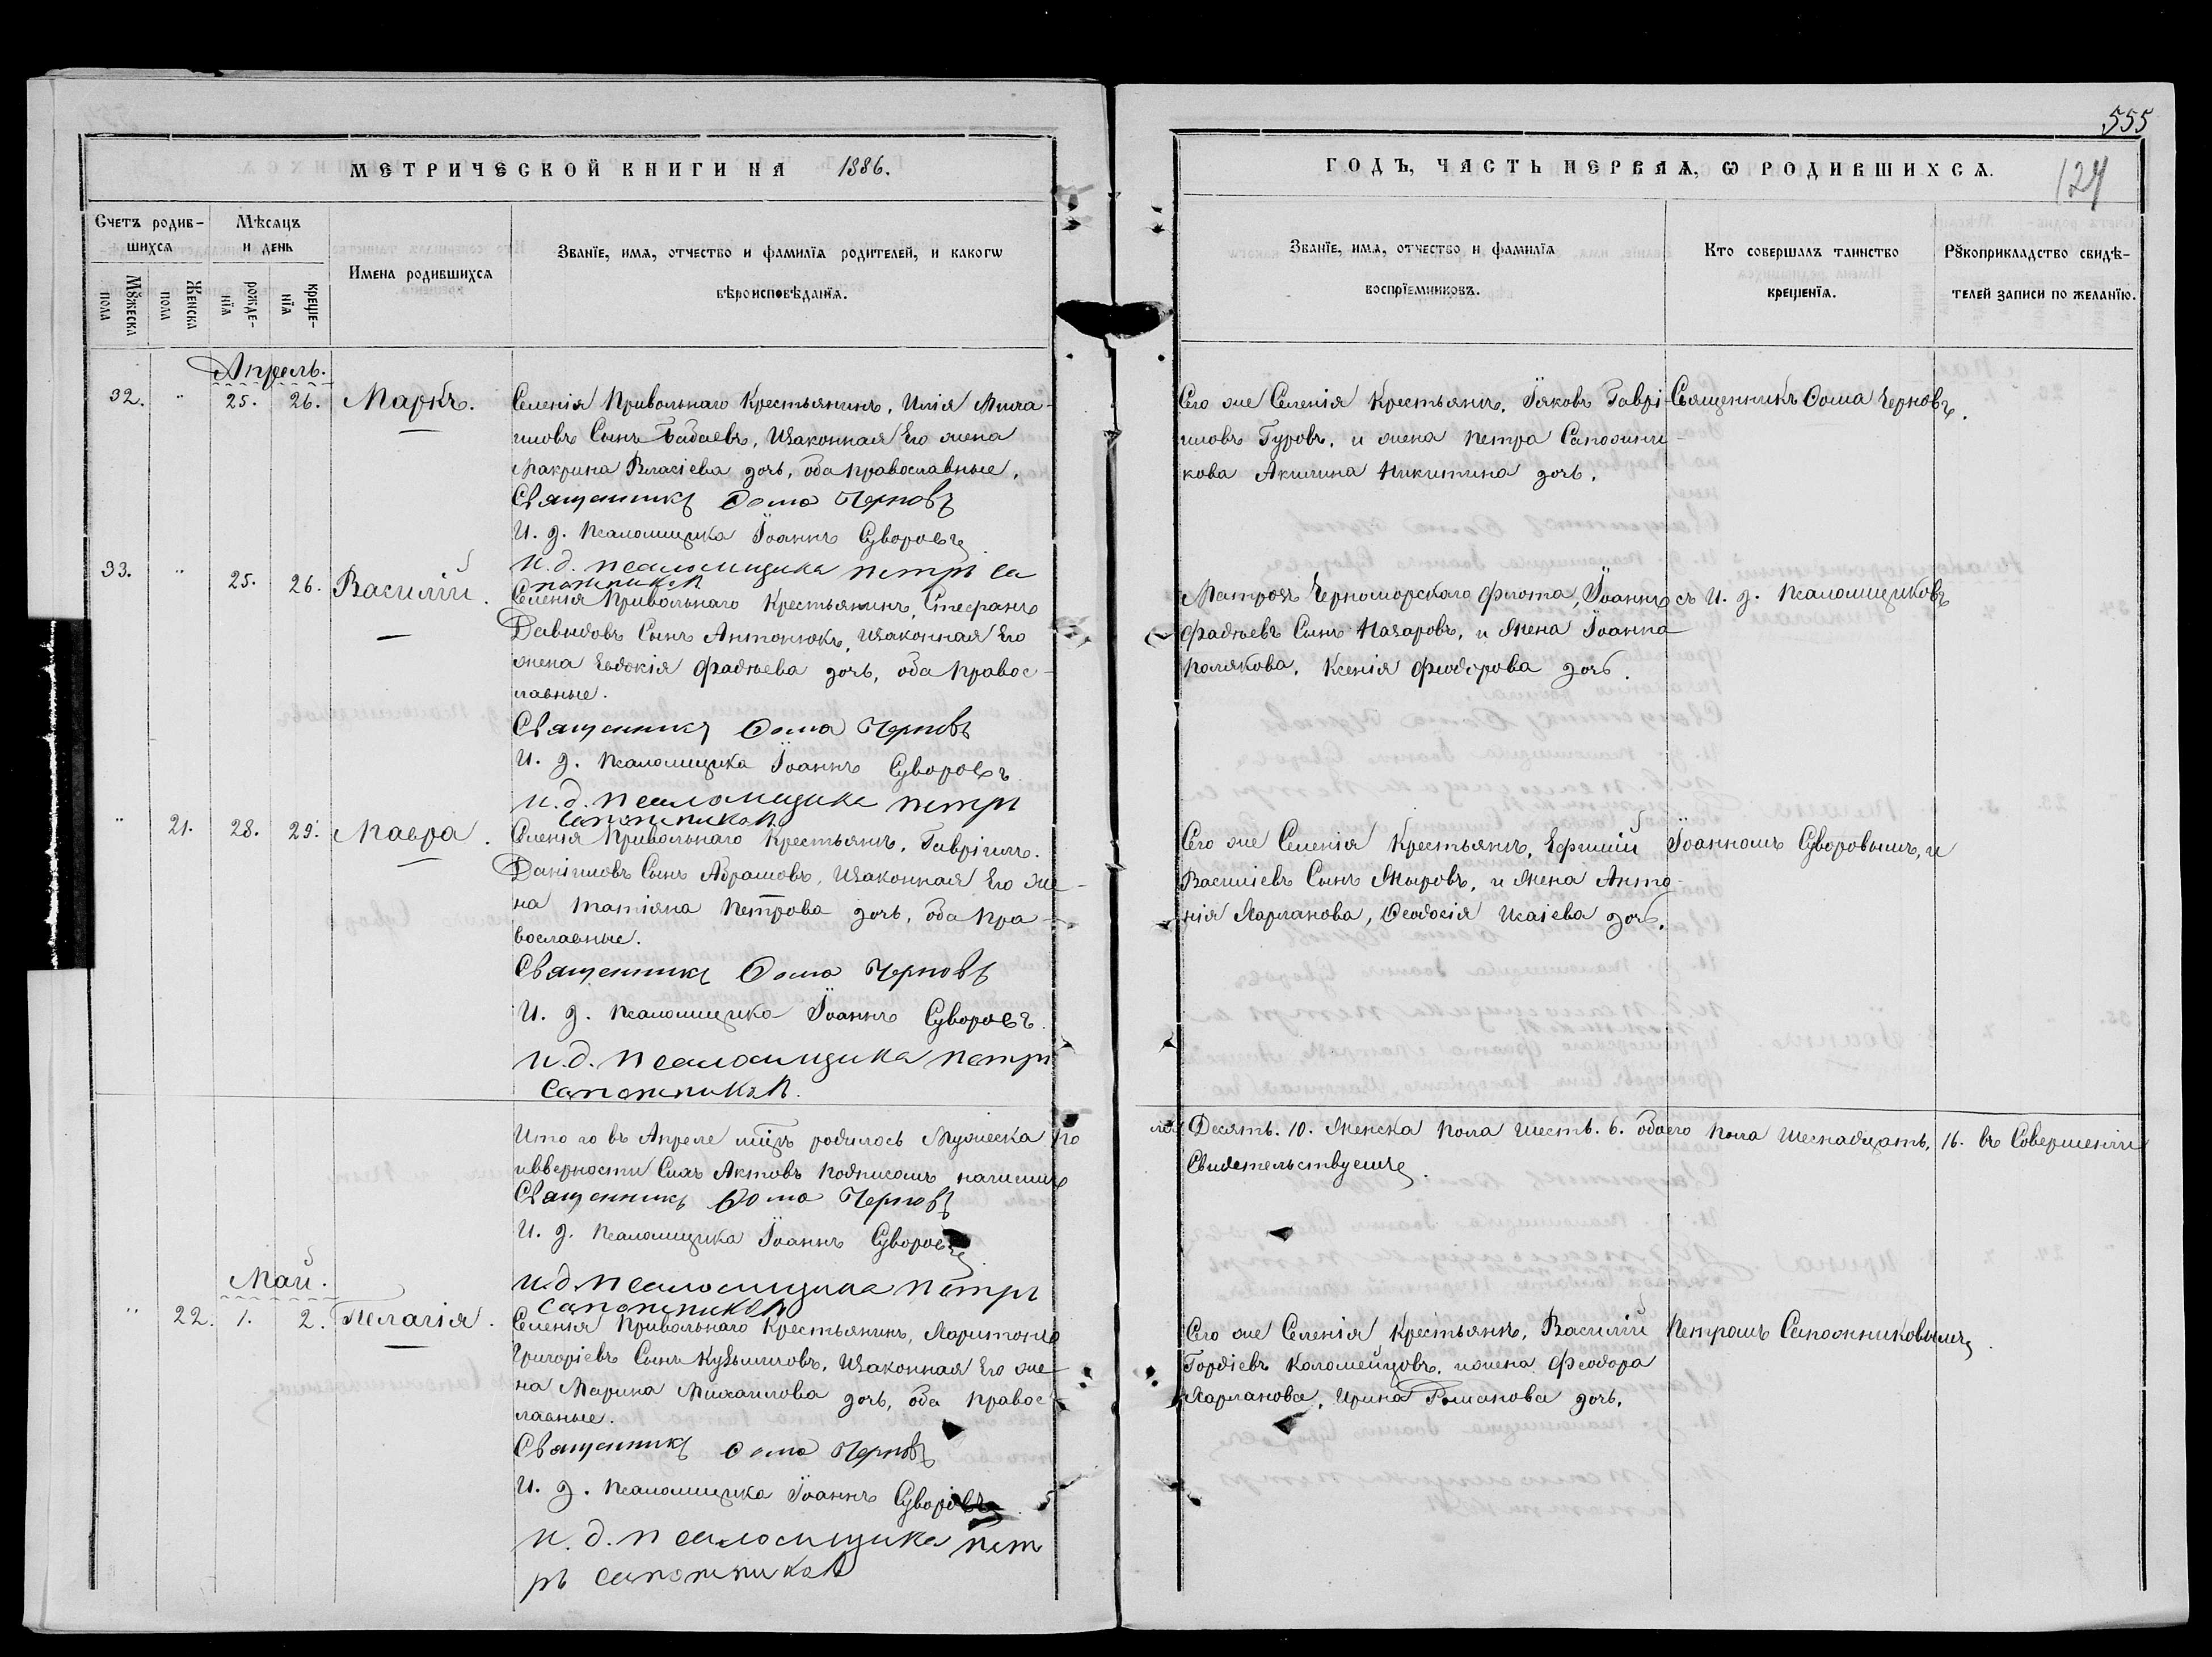 555
МЕТРИЧЕСКОЙ КНИГИ НА 1886.
ГОДЪ, ЧАСТЬ ПЕРВАѦ, Ѡ РОДИВШИХСѦ.
124
Счетъ родив-
шихсѧ
Мѣсѧцъ
и день
Мꙋжеска
пола
Женска
пола
рожде-
нїѧ
креще-
нїѧ
Имена родившихсѧ
Званїе, имѧ, отчество и фамилїѧ родителей, и какогѡ
вѣроисповѣданїѧ.
Званїе, имѧ, отчество и фамилїѧ
воспрїемниковъ.
Кто совершалъ таинство
крещенїѧ.
Рꙋкоприкладство свидѣ-
телей записи по желанїю.
Апрель.
32. " 25. 26. Маркъ.
Селенія Привольнаго Крестьянинъ, Илія Миха-
иловъ Сынъ Бабаевъ, Изаконная Его жена
Макрина Власіева дочь, оба православные.
Священникъ Ѳома Черновъ
И. д. Псаломщика Іоаннъ Суворовъ
и. д. псаломщика петръ са
пожниковъ
Сего же Селенія Крестьянъ, Іяковъ Гаврі-
иловъ Гуровъ, и жена Петра Сапожни-
кова Акилина Никитина дочь.
Священникъ Ѳома Черновъ.
33. " 25. 26. Василій.
Селенія Привольнаго Крестьянинъ, Стефанъ
Давыдовъ Сынъ Антонюкъ, Изаконная Его
жена Евдокія Фадѣева дочь, оба правос-
лавные.
Священникъ Ѳома Черновъ
И. д. Псаломщика Іоаннъ Суворовъ.
и. д. псаломщика петръ
сапожниковъ
Матрозъ Черноморскаго Флота, Іоаннъ
Фадѣевъ Сынъ Назаровъ, и Жена Іоанна
Полякова, Ксенія Феодорова дочь.
съ И. д. Псаломщиковъ
" 21. 28. 29. Мавра.
Селенія Привольнаго Крестьянъ, Гавріилъ.
Даніиловъ Сынъ Абрамовъ, Изаконная Его же-
на Татіяна Петрова дочь, оба пра-
вославные.
Священникъ Ѳома Черновъ
И. д. Псаломщика Іоаннъ Суворовъ.
и. д. псаломщика петръ
сапожниковъ.
Сего же Селенія Крестьянъ, Ефимій
Василіевъ Сынъ Жыровъ, и Жена Анто-
нія Харланова, Ѳеодосія Исаіева дочь.
Іоанномъ Суворовымъ, и
Итого въ Апреле мцѣ родилось Мужеска по
ла Десять. 10. Женска пола шесть. 6. обоего пола шеснадцать, 16. въ Совершеніи
ивверности Сихъ Актовъ подписомъ нашимъ
Свидетельствуемъ.
Священникъ Ѳома Черновъ
И. д. Псаломщика Іоаннъ Суворовъ
и. д. псаломщика петръ
сапожниковъ
Май.
" 22. 1. 2. Пелагія.
Селенія Привольнаго Крестьянинъ, Харитонъ
Григоріевъ Сынъ Кузьминовъ, Изаконная Его же-
на Марина Михаилова дочь, оба правос-
лавные.
Священникъ Ѳома Черновъ
И. д. Псаломщика Іоаннъ Суворовъ.
и. д. псаломщика пет
ръ сапожниковъ
Сего же Селенія Крестьянъ, Василій
Гордіевъ Коломейцовъ, ижена Феодора
Харланова, Ирина Романова дочь.
Петромъ Сапожниковымъ.